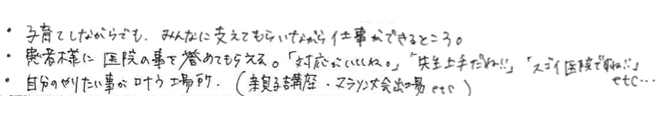 ・子育てしながらでも、みんなに支えてもらいながら仕事ができるところ。
・患者様に医院の事を誉めてもらえる。「対応がいいね。」「先生上手だね!!」「スゴイ医院ですね!!」etc…
・自分のやりたい事が叶う場所。(親子講座・マラソン大会出場 etc)